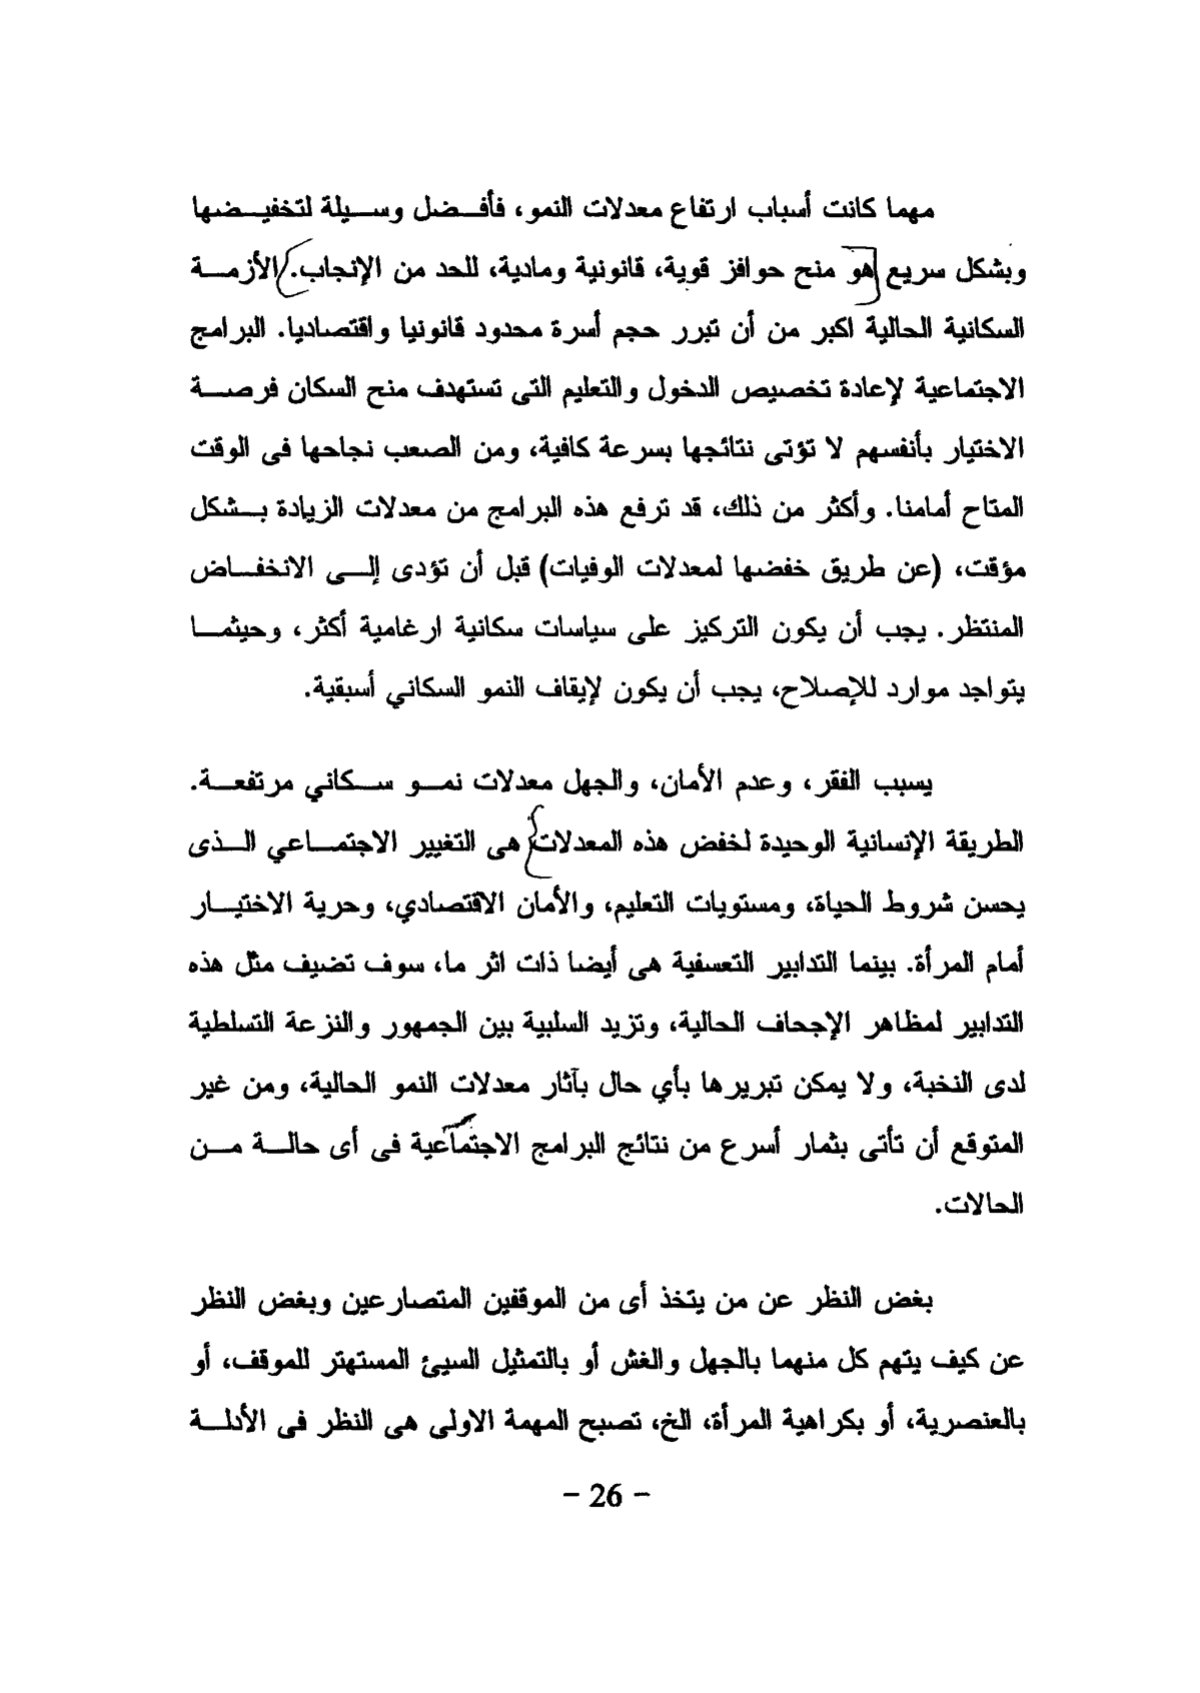 مهما كانت أسباب ارتفاع معدلات النمو، فأفضل وسيلة لتخفيضها
وبشكل سريع هو منح حوافز قوية، قانونية ومادية، للحد من الإنجاب. الأزمة
السكانية الحالية اكبر من أن تبرر حجم أسرة محدود قانونيا واقتصاديا. البرامج
الاجتماعية لإعادة تخصيص الدخول والتعليم التى تستهدف منح السكان فرصة
الاختيار بأنفسهم لا تؤتى نتائجها بسرعة كافية، ومن الصعب نجاحها فى الوقت
المتاح أمامنا. وأكثر من ذلك، قد ترفع هذه البرامج من معدلات الزيادة بشكل
مؤقت، (عن طريق خفضها لمعدلات الوفيات) قبل أن تؤدى إلى الانخفاض
المنتظر. يجب أن يكون التركيز على سياسات سكانية ارغامية أكثر، وحيثما
يتواجد موارد للإصلاح، يجب أن يكون لإيقاف النمو السكاني أسبقية.
يسبب الفقر، وعدم الأمان، والجهل معدلات نمو سكاني مرتفعة.
الطريقة الإنسانية الوحيدة لخفض هذه المعدلات هى التغيير الاجتماعي الذى
يحسن شروط الحياة، ومستويات التعليم، والأمان الاقتصادي، وحرية الاختيار
أمام المرأة. بينما التدابير التعسفية هى أيضا ذات اثر ما، سوف تضيف مثل هذه
التدابير لمظاهر الإجحاف الحالية، وتزيد السلبية بين الجمهور والنزعة التسلطية
لدى النخبة، ولا يمكن تبريرها بأي حال بآثار معدلات النمو الحالية، ومن غير
المتوقع أن تأتى بثمار أسرع من نتائج البرامج الاجتماعية فى أى حالة من
الحالات.
بغض النظر عن من يتخذ أى من الموقفين المتصارعين وبغض النظر
عن كيف يتهم كل منهما بالجهل والغش أو بالتمثيل السيئ المستهتر للموقف، أو
بالعنصرية، أو بكراهية المرأة، الخ، تصبح المهمة الاولى هى النظر فى الأدلة
- 26 -